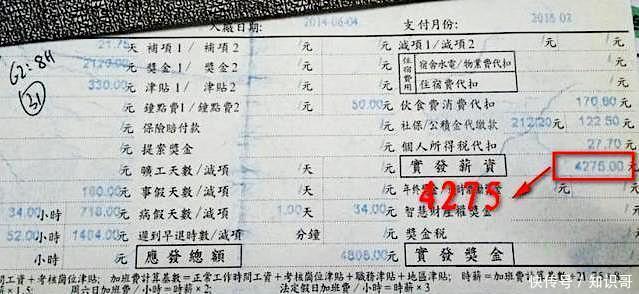 入廠日期： 2014-06-04 支付月份： 2016 03
21.75 天 補項1/ 補項2 /元 減項1/減項2 / /元
2120.00 元 獎金1/ 獎金2 /元 住宿費用 宿舍水電/物業費代扣 /元
330.00 元 津貼1/ 津貼2 /元 住宿費代扣 /元
62:84
31
/元 鐘點費1/鐘點費2 50.00 /元 伙食費消費代扣 170.60
/元 保險賠付款 /元 社保/公積金代繳款 212/20 元 122.50
/元 提案獎金 /元 個人所得稅代扣 27.70
/元 曠工天數/減項 /天 /元 實發薪資 4275.00
160.00 /元 事假天數/減項 /天 /元 /元
4275
34.00 小時 718.00 /元 病假天數/減項 1.00 天 34.00 /元 智慧財產權獎金
52.00 小時 1464.00 /元 遲到早退時數/減項 分鐘 /元 獎金稅
小時 /元 應發總額 /元 實發獎金
工資＋考核崗位津貼； 加班費計算基數＝正常工作時間工資＋考核崗位津貼＋職務津貼＋地區津貼； 時薪＝加班費計算基數÷21.75÷8
×1.5； 周六日加班費/小時＝時薪×2； 法定假日加班費/小時＝時薪×3
快传号/知识哥